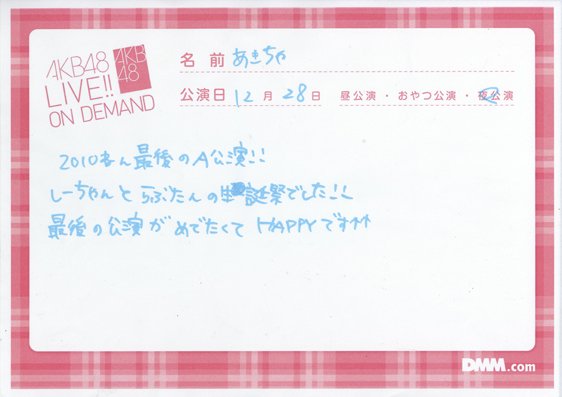 AKB48
LIVE!!
ON DEMAND
AKB
48
名前 あきちゃ
公演日 12月28日 昼公演・おやつ公演・夜公演
2010ねん最後のA公演!!
しーちゃんとらぶたんの生誕祭でした!!
最後の公演がめでたくてHAPPYです↑↑
DMM.com